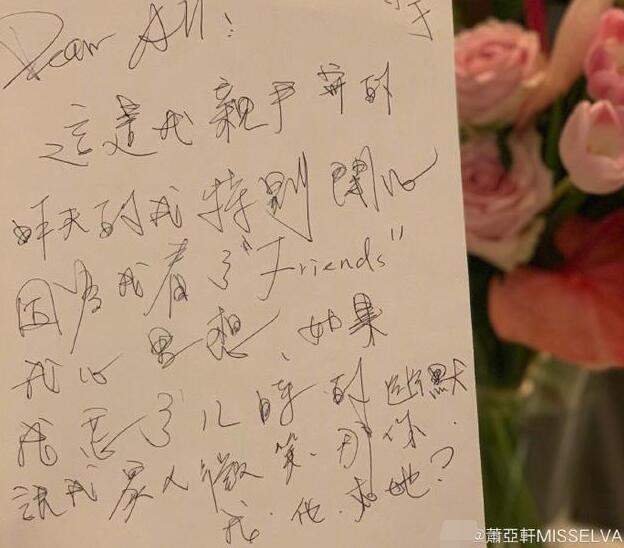 Dear All:
這是我親手寫的
昨天的我特別開心
因為我看了"Friends"
我心想、如果
我了儿時的幽默
我人微笑、那你.
我.他.和她?
@蕭亞軒MISSELVA